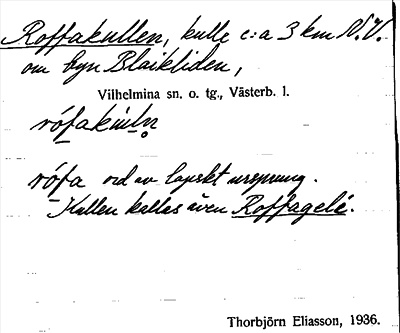 Roffakullen, kulle c:a 3 km N.V.
om byn Blaikliden,
Vilhelmina sn. o. tg., Västerb. l.
rófa
rófa ord av lapskt ursprung.
Kullen kallas även Roffagelé.
Thorbjörn Eliasson, 1936.